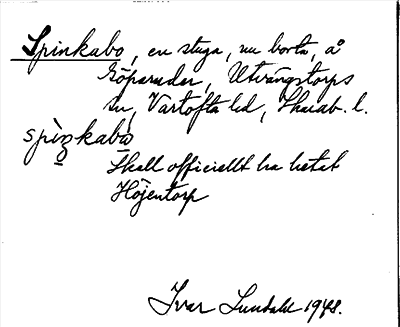 Spinkabo, en stuga, nu borta, å
Köparudor, Utvängstorps
sn, Vartofta hd, Skarab. l.
spiŋkabo
Skall officiellt ha hetat
Höjentorp
Ivar Lundahl 1948.